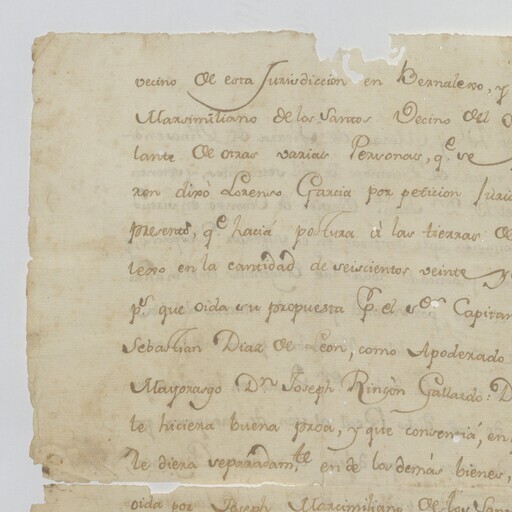 vecino de esta Jurisdiccion en Bernalexo, y
Marsimiliano de los Santos Vecino del
lante de otras varias Personas, q.e se
ron dixo Lorenso Garcia por peticion Juri
presentó, q.e haciá postura á las tierras de
lexo en la cantidad de seiscientos veinte y
p.s que oida su propuezta p.r el s.or Capitan
Sebastian Diaz de Leon, como Apoderado
Mayorasgo D.n Joseph Rincòn Gallardo: D
le hiciera buena proa, y que consentiá, en
le diera separadam.te en de los demás bienes,
oida por Joseph Marcimiliano de los San